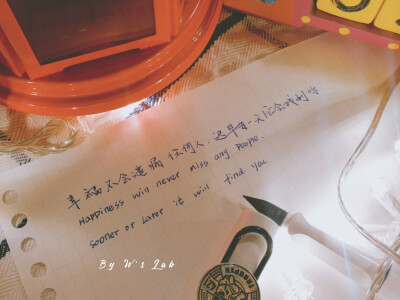 幸福不会遗漏任何人.迟早有一天它会找到你
Happiness will never miss any people.
sooner or later it will find you
By W's Lab